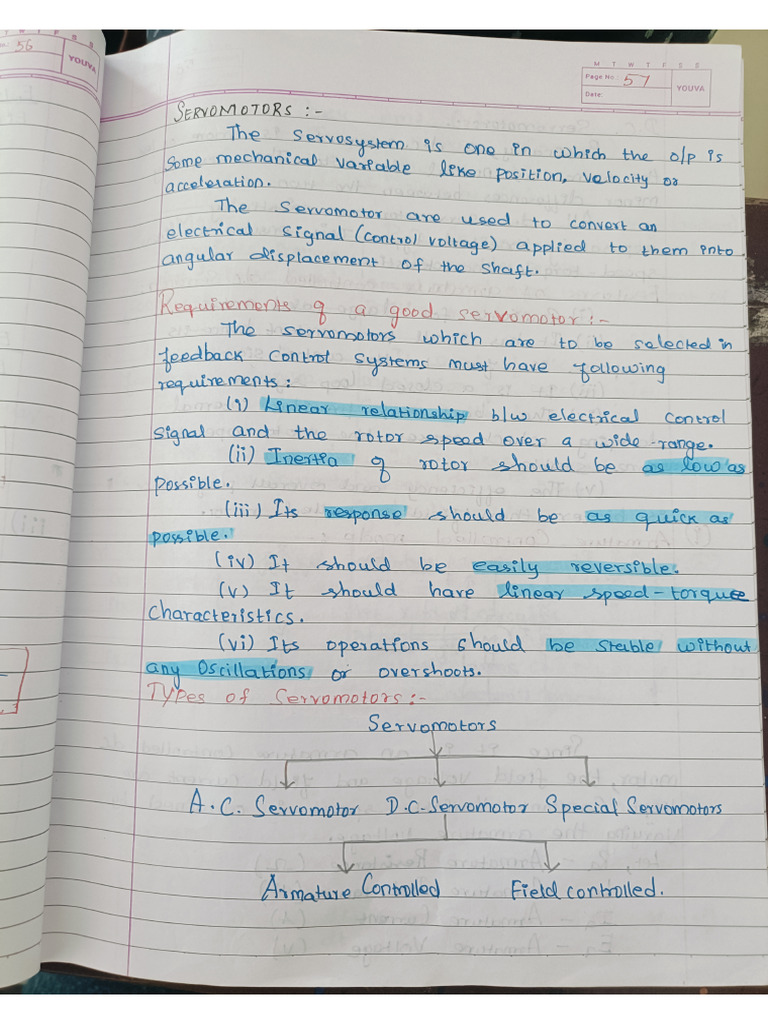 56
YOUVA
M T W T F S S
Page No.: 57
Date:
YOUVA
SERVOMOTORS :-
The servosystem is one in which the o/p is
some mechanical variable like position, velocity or
acceleration.
The servomotor are used to convert an
electrical signal (control voltage) applied to them into
angular displacement of the shaft.
Requirements of a good servomotor :-
The servomotors which are to be selected in
feedback control systems must have following
requirements :
(i) Linear relationship b/w electrical control
signal and the rotor speed over a wide range.
(ii) Inertia of rotor should be as low as
possible.
(iii) Its response should be as quick as
possible.
(iv) It should be easily reversible.
(v) It should have linear speed-torque
characteristics.
(vi) Its operations should be stable without
any oscillations or overshoots.
Types of Servomotors :-
Servomotors
A.C. Servomotor D.C. Servomotor Special Servomotors
Armature Controlled Field controlled.